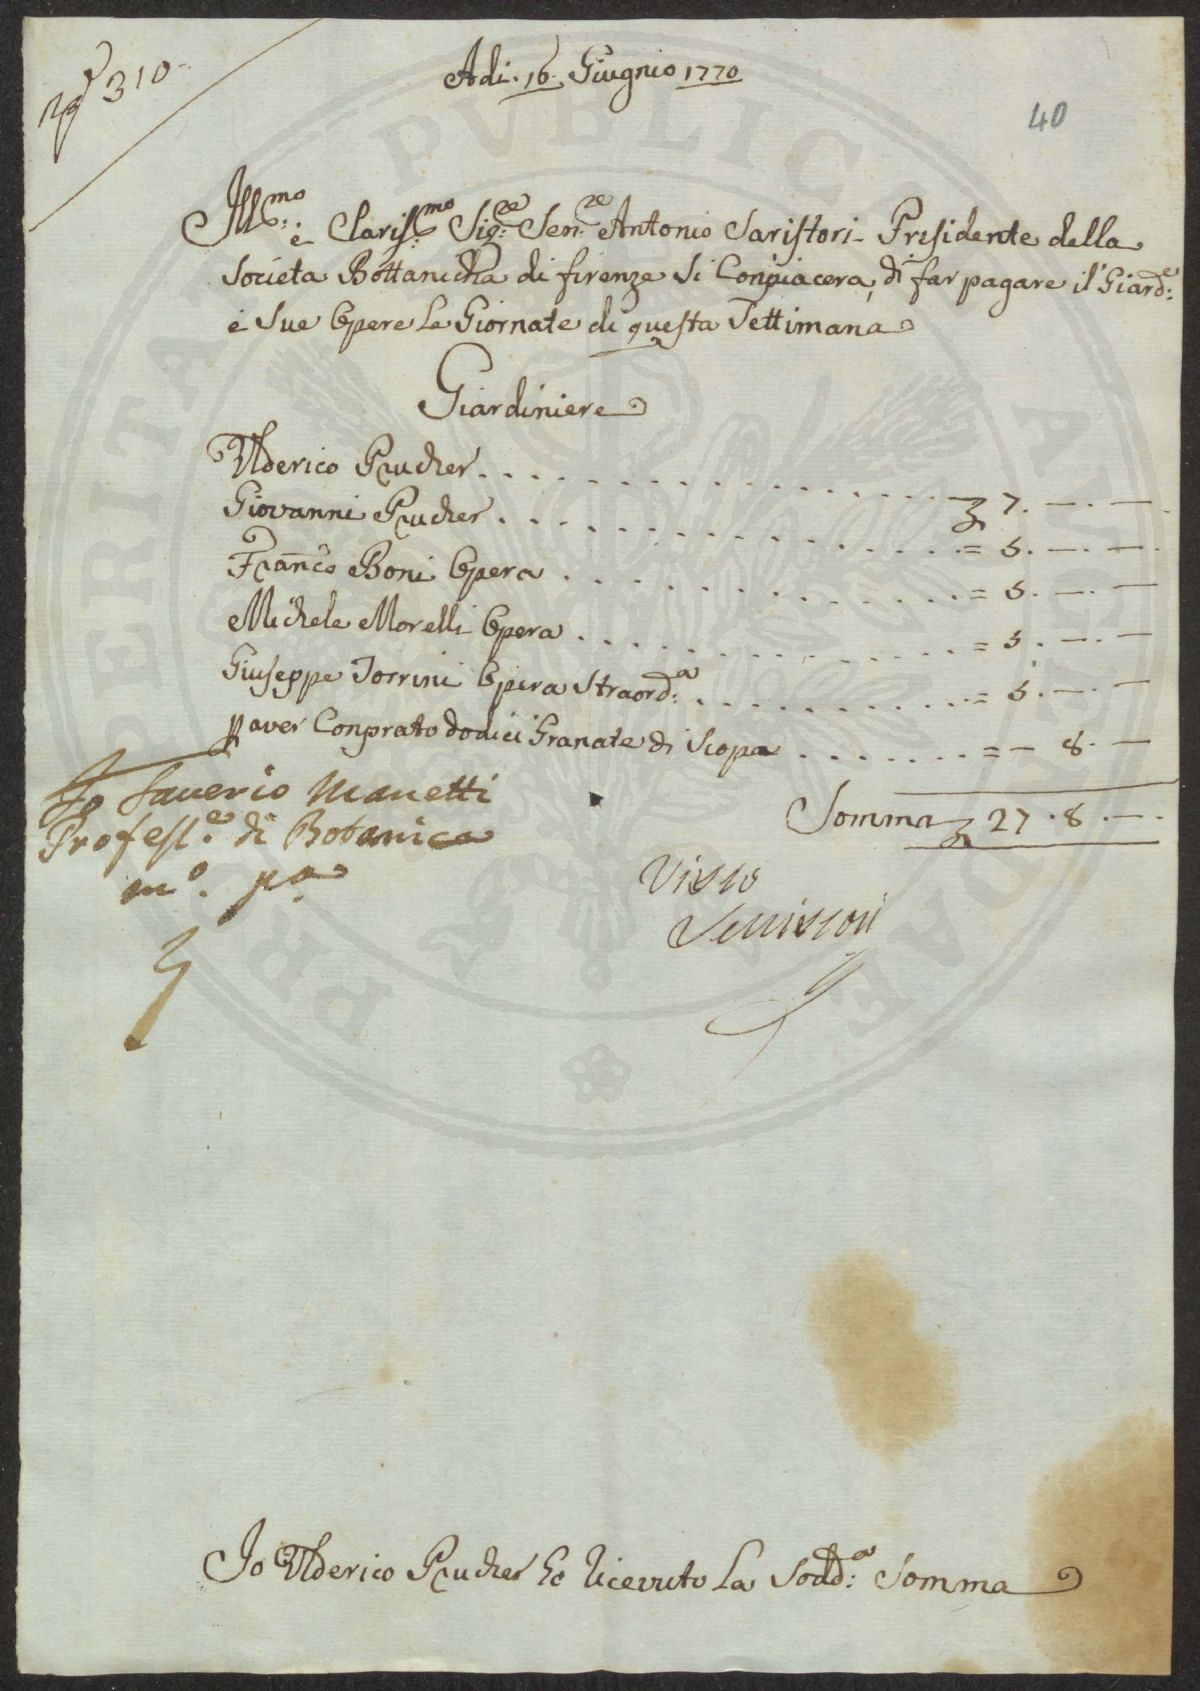 310
Adi. 16. Giugnio 1770
40
Ill:mo e Clariss:mo Sig:re Sen:re Antonio Saristori Presidente della
Societa Bottanicha di firenze Si Conpiacera, di far pagare il Giard:e
e Sue Opere Le Giornate di questa Settimana
Giardiniere
Ulderico Prucher . . . . . 7. — . —
Giovanni Prucher . . . . . = 5. — . —
Franc:o Boni Opera . . . . . = 5. — . —
Michele Morelli Opera . . . . . = 5. — . —
Giuseppe Torrini Opera Straord:a . . . . . = 5. — . —
p aver Conprato dodici Granate di Scopa . . . . . = — 8. —
Somma 27. 8. —
Io Saverio Manetti
Profess.e di Botanica
m.o p.a
Visto
Serristori
Io Ulderico Prucher ho Ricevuto La Sodd:a Somma